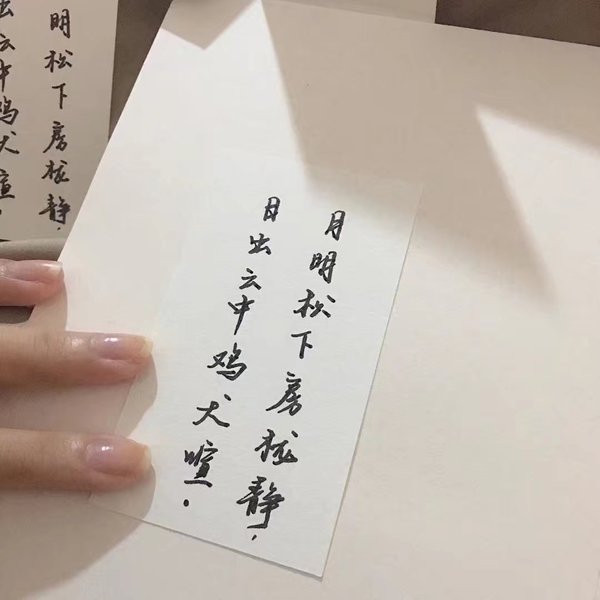 月明松下房栊静，
日出云中鸡犬喧。
明松下房栊静，
出云中鸡犬喧，